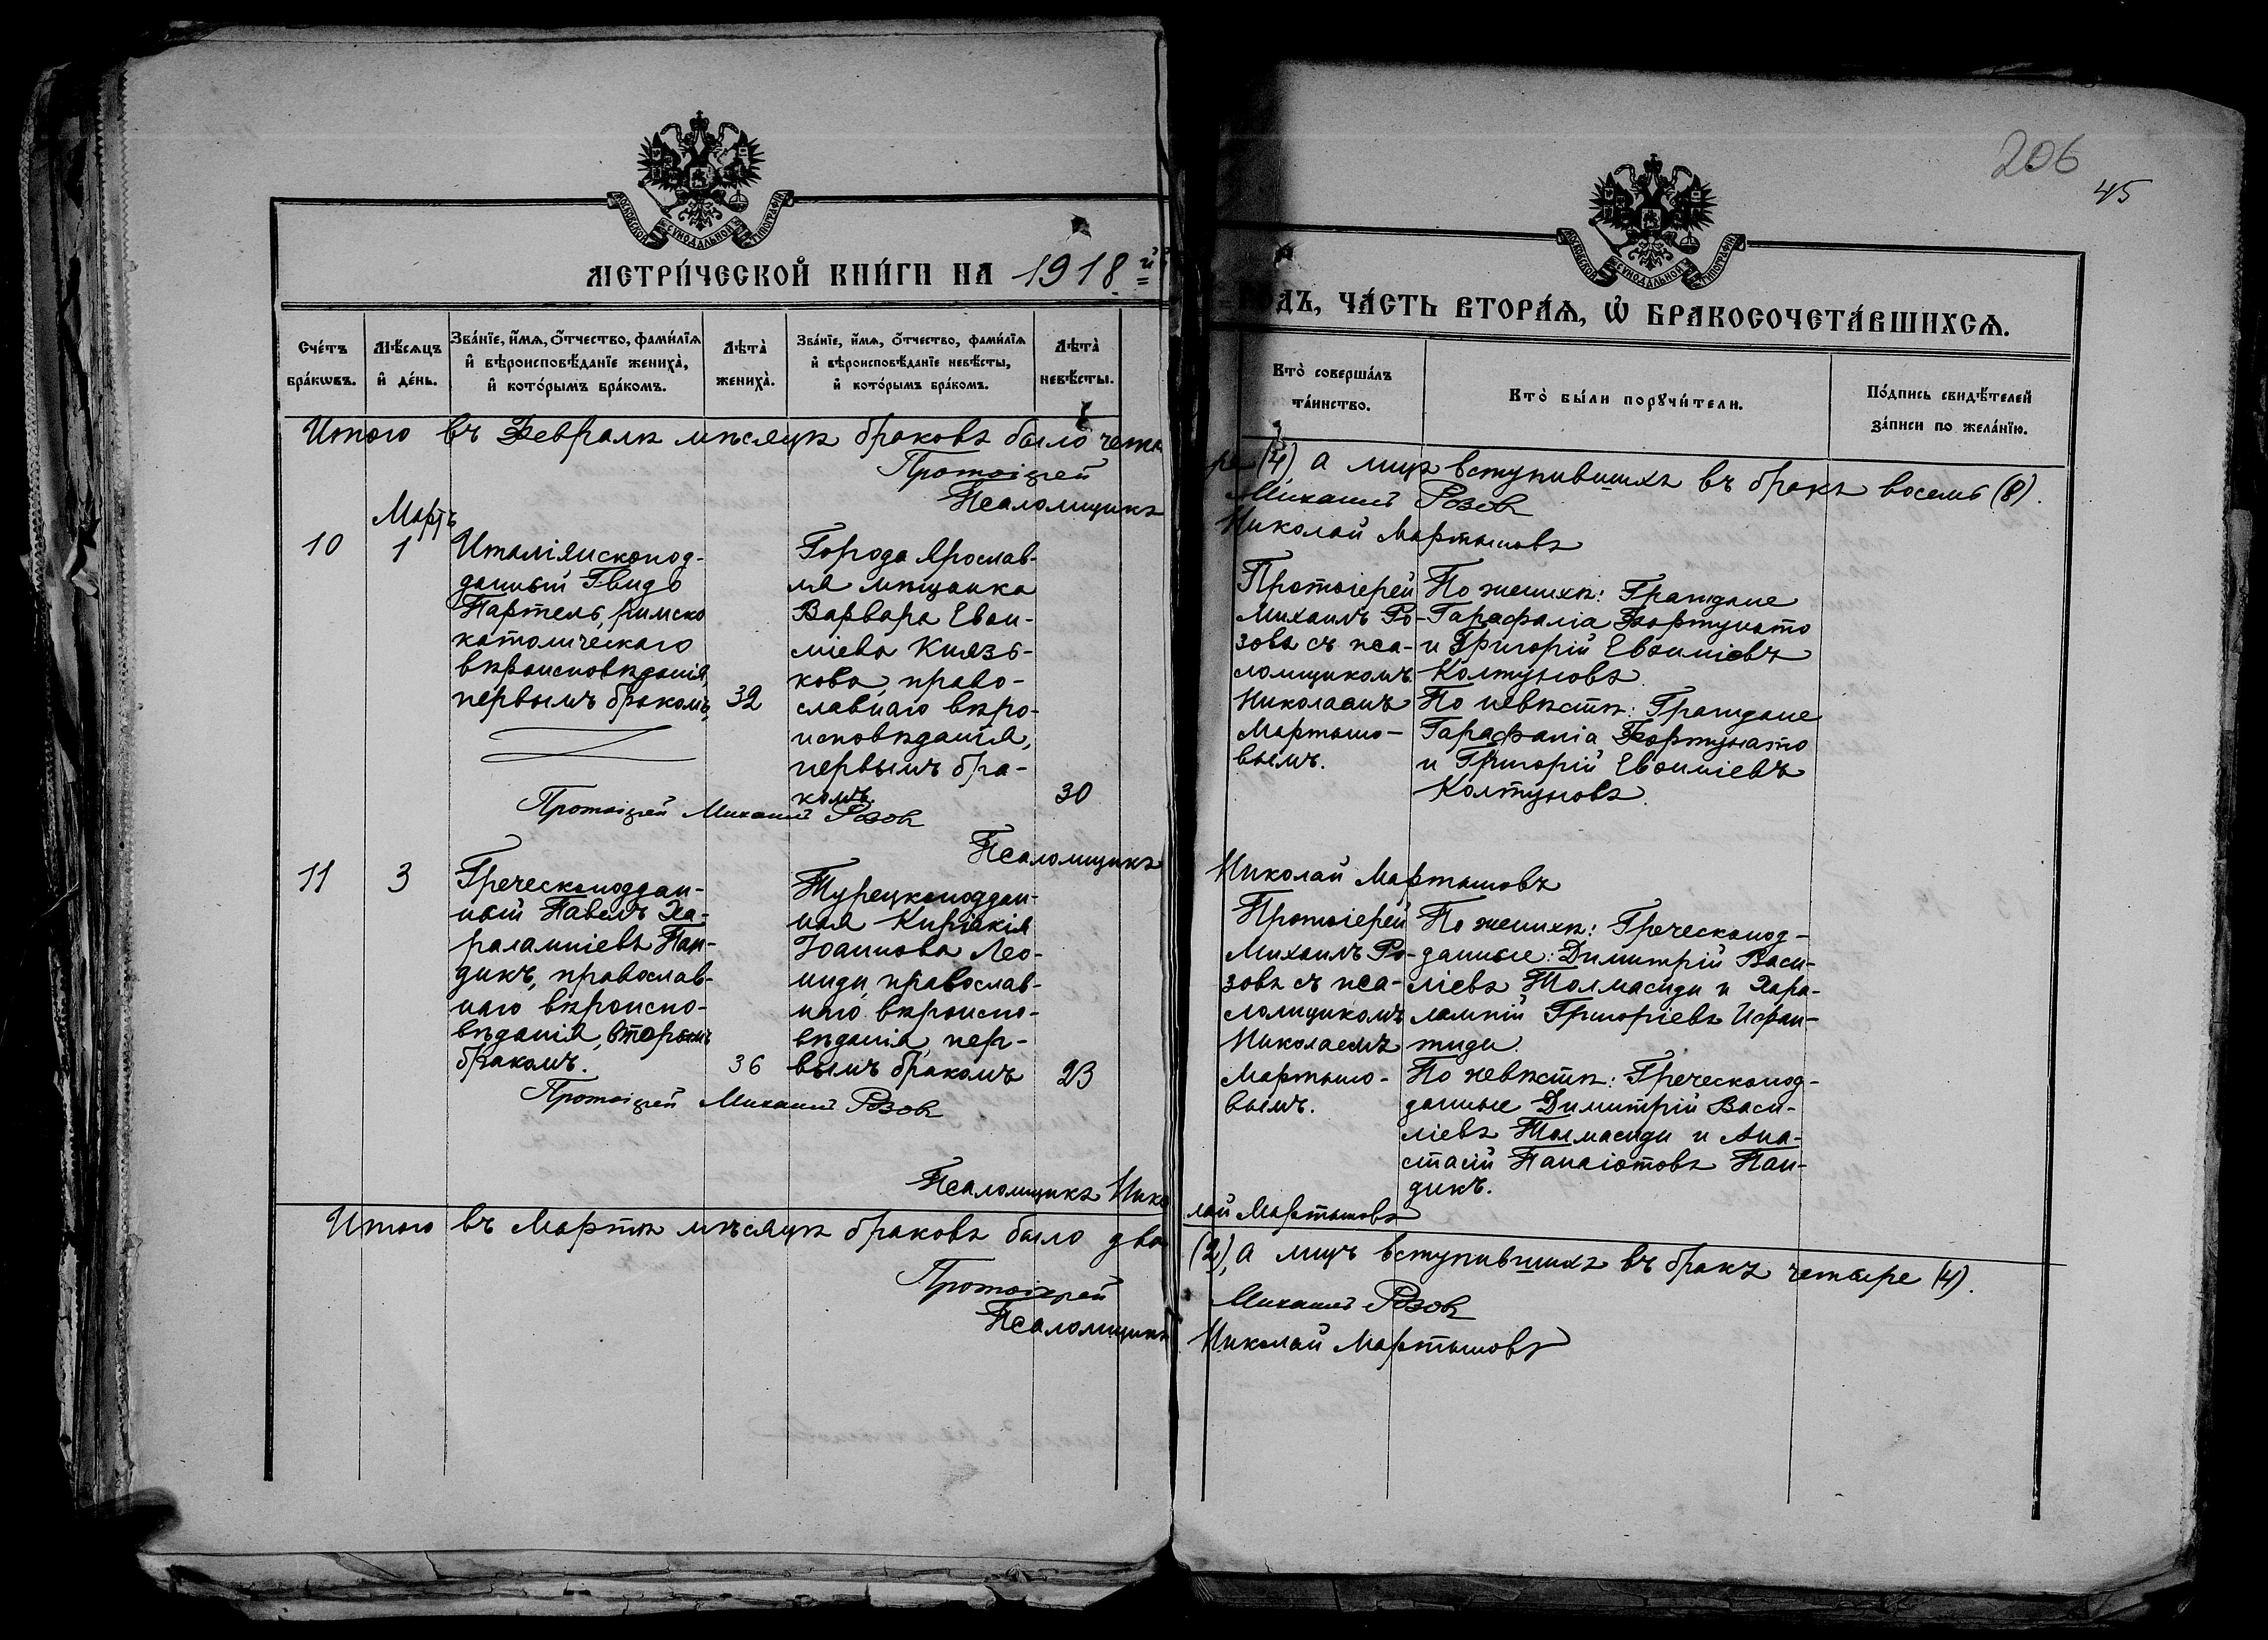 206
45
МОСКОВСКОЙ СѴНОДАЛЬНОЙ ТИПОГРАФІИ
МОСКОВСКОЙ СѴНОДАЛЬНОЙ ТИПОГРАФІИ
МЕТРИ́ЧЕСКОЙ КНИ́ГИ НА 1918 й
ГОДЪ, ЧА́СТЬ ВТОРА́Ѧ, Ѡ҆ БРАКОСОЧЕТА́ВШИХСѦ.
Сче́тъ
бра́кѡвъ.
Мѣ́сѧцъ
и҆ де́нь.
Зва́нїе, и҆́мѧ, ѻ҆́тчество, фами́лїѧ
и҆ вѣроисповѣ́данїе жениха̀,
и҆ кото́рымъ бра́комъ.
Лѣта̀
жениха̀.
Зва́нїе, и҆́мѧ, ѻ҆́тчество, фами́лїѧ
и҆ вѣроисповѣ́данїе невѣ́сты,
и҆ кото́рымъ бра́комъ.
Лѣта̀
невѣ́сты.
Кто̀ соверша́лъ
та́инство.
Кто̀ бы́ли порꙋчи́тели.
По́дпись свидѣ́телей
за́писи по жела́нїю.
Итого въ Февралѣ мѣсяцѣ браковъ было четы
ре (4), а лицъ вступившихъ въ бракъ восемь (8).
Протоіерей
Михаилъ Розовъ
Псаломщикъ
Николай Мартыновъ
Мартъ
10
1
Италіянскопод-
данный Гвидо
Партель, римско
католическаго
вѣроисповѣданія,
первымъ бракомъ,
32
Города Ярослав-
ля мѣщанка
Варвара Евви-
міева Князь-
кова, право-
славнаго вѣро-
исповѣданія,
первымъ бра-
комъ.
30
Протоіерей
Михаилъ Ро-
зовъ съ пса-
ломщикомъ
Николаемъ
Мартыно-
вымъ.
По женихѣ: Граждане
Гарафаліа Фортунато
и Григорій Еввиміевъ
Колтуновъ.
По невѣстѣ: Граждане
Гарафаліа Фортунато
и Григорій Еввиміевъ
Колтуновъ.
Протоіерей Михаилъ Розовъ
Псаломщикъ
Николай Мартыновъ
11
3
Греческоподдан-
ный Павелъ Ха-
ралампіевъ Пан-
дикъ, православ-
наго вѣроиспо-
вѣданія, вторымъ
бракомъ.
36
Турецкоподдан-
ная Киріакія
Іоаннова Лео-
ниди, православ-
наго вѣроиспо-
вѣданія, пер-
вымъ бракомъ
23
Протоіерей
Михаилъ Ро-
зовъ съ пса-
ломщикомъ
Николаемъ
Мартыно-
вымъ.
По женихѣ: Греческопод-
данные: Димитрій Васи-
ліевъ Толмасиди и Хара-
лампій Григоріевъ Исфан-
тиди.
По невѣстѣ: Греческопод-
данные Димитрій Васи-
ліевъ Толмасиди и Ана-
стасій Панаіотовъ Пан-
дикъ.
Протоіерей Михаилъ Розовъ
Псаломщикъ Нико
лай Мартыновъ
Итого въ Мартѣ мѣсяцѣ браковъ было два
(2), а лицъ вступившихъ въ бракъ четыре (4).
Протоіерей
Михаилъ Розовъ
Псаломщикъ
Николай Мартыновъ